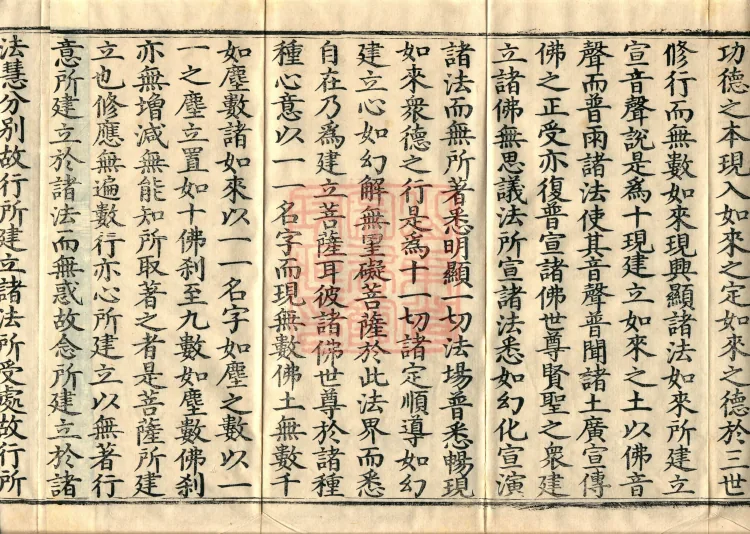 功德之本現入如來之定如來之德於三世
修行而無數如來現興顯諸法如來所建立
宣音聲說是為十現建立如來之土以佛音
聲而普雨諸法使其音聲普聞諸土廣宣傳
佛之正受亦復普宣諸佛世尊賢聖之衆建
立諸佛無思議法所宣諸法悉如幻化宣演
諸法而無所著悉明顯一切法場普悉暢現
如來衆德之行是為十一切諸定順導如幻
建立心如幻解無罣礙菩薩於此法界而悉
自在乃為建立菩薩耳彼諸佛世尊於諸種
種心意以一一名字而現無數佛土無數千
如塵數諸如來以一一名字如塵之數以一
一之塵立置如十佛刹至九數如塵數佛刹
亦無增減無能知所取著之者是菩薩所建
立也修應無遍數行亦心所建立以無著行
意所建立於諸法而無惑故念所建立於諸
法慧分別故行所建立諸法所受處故行所